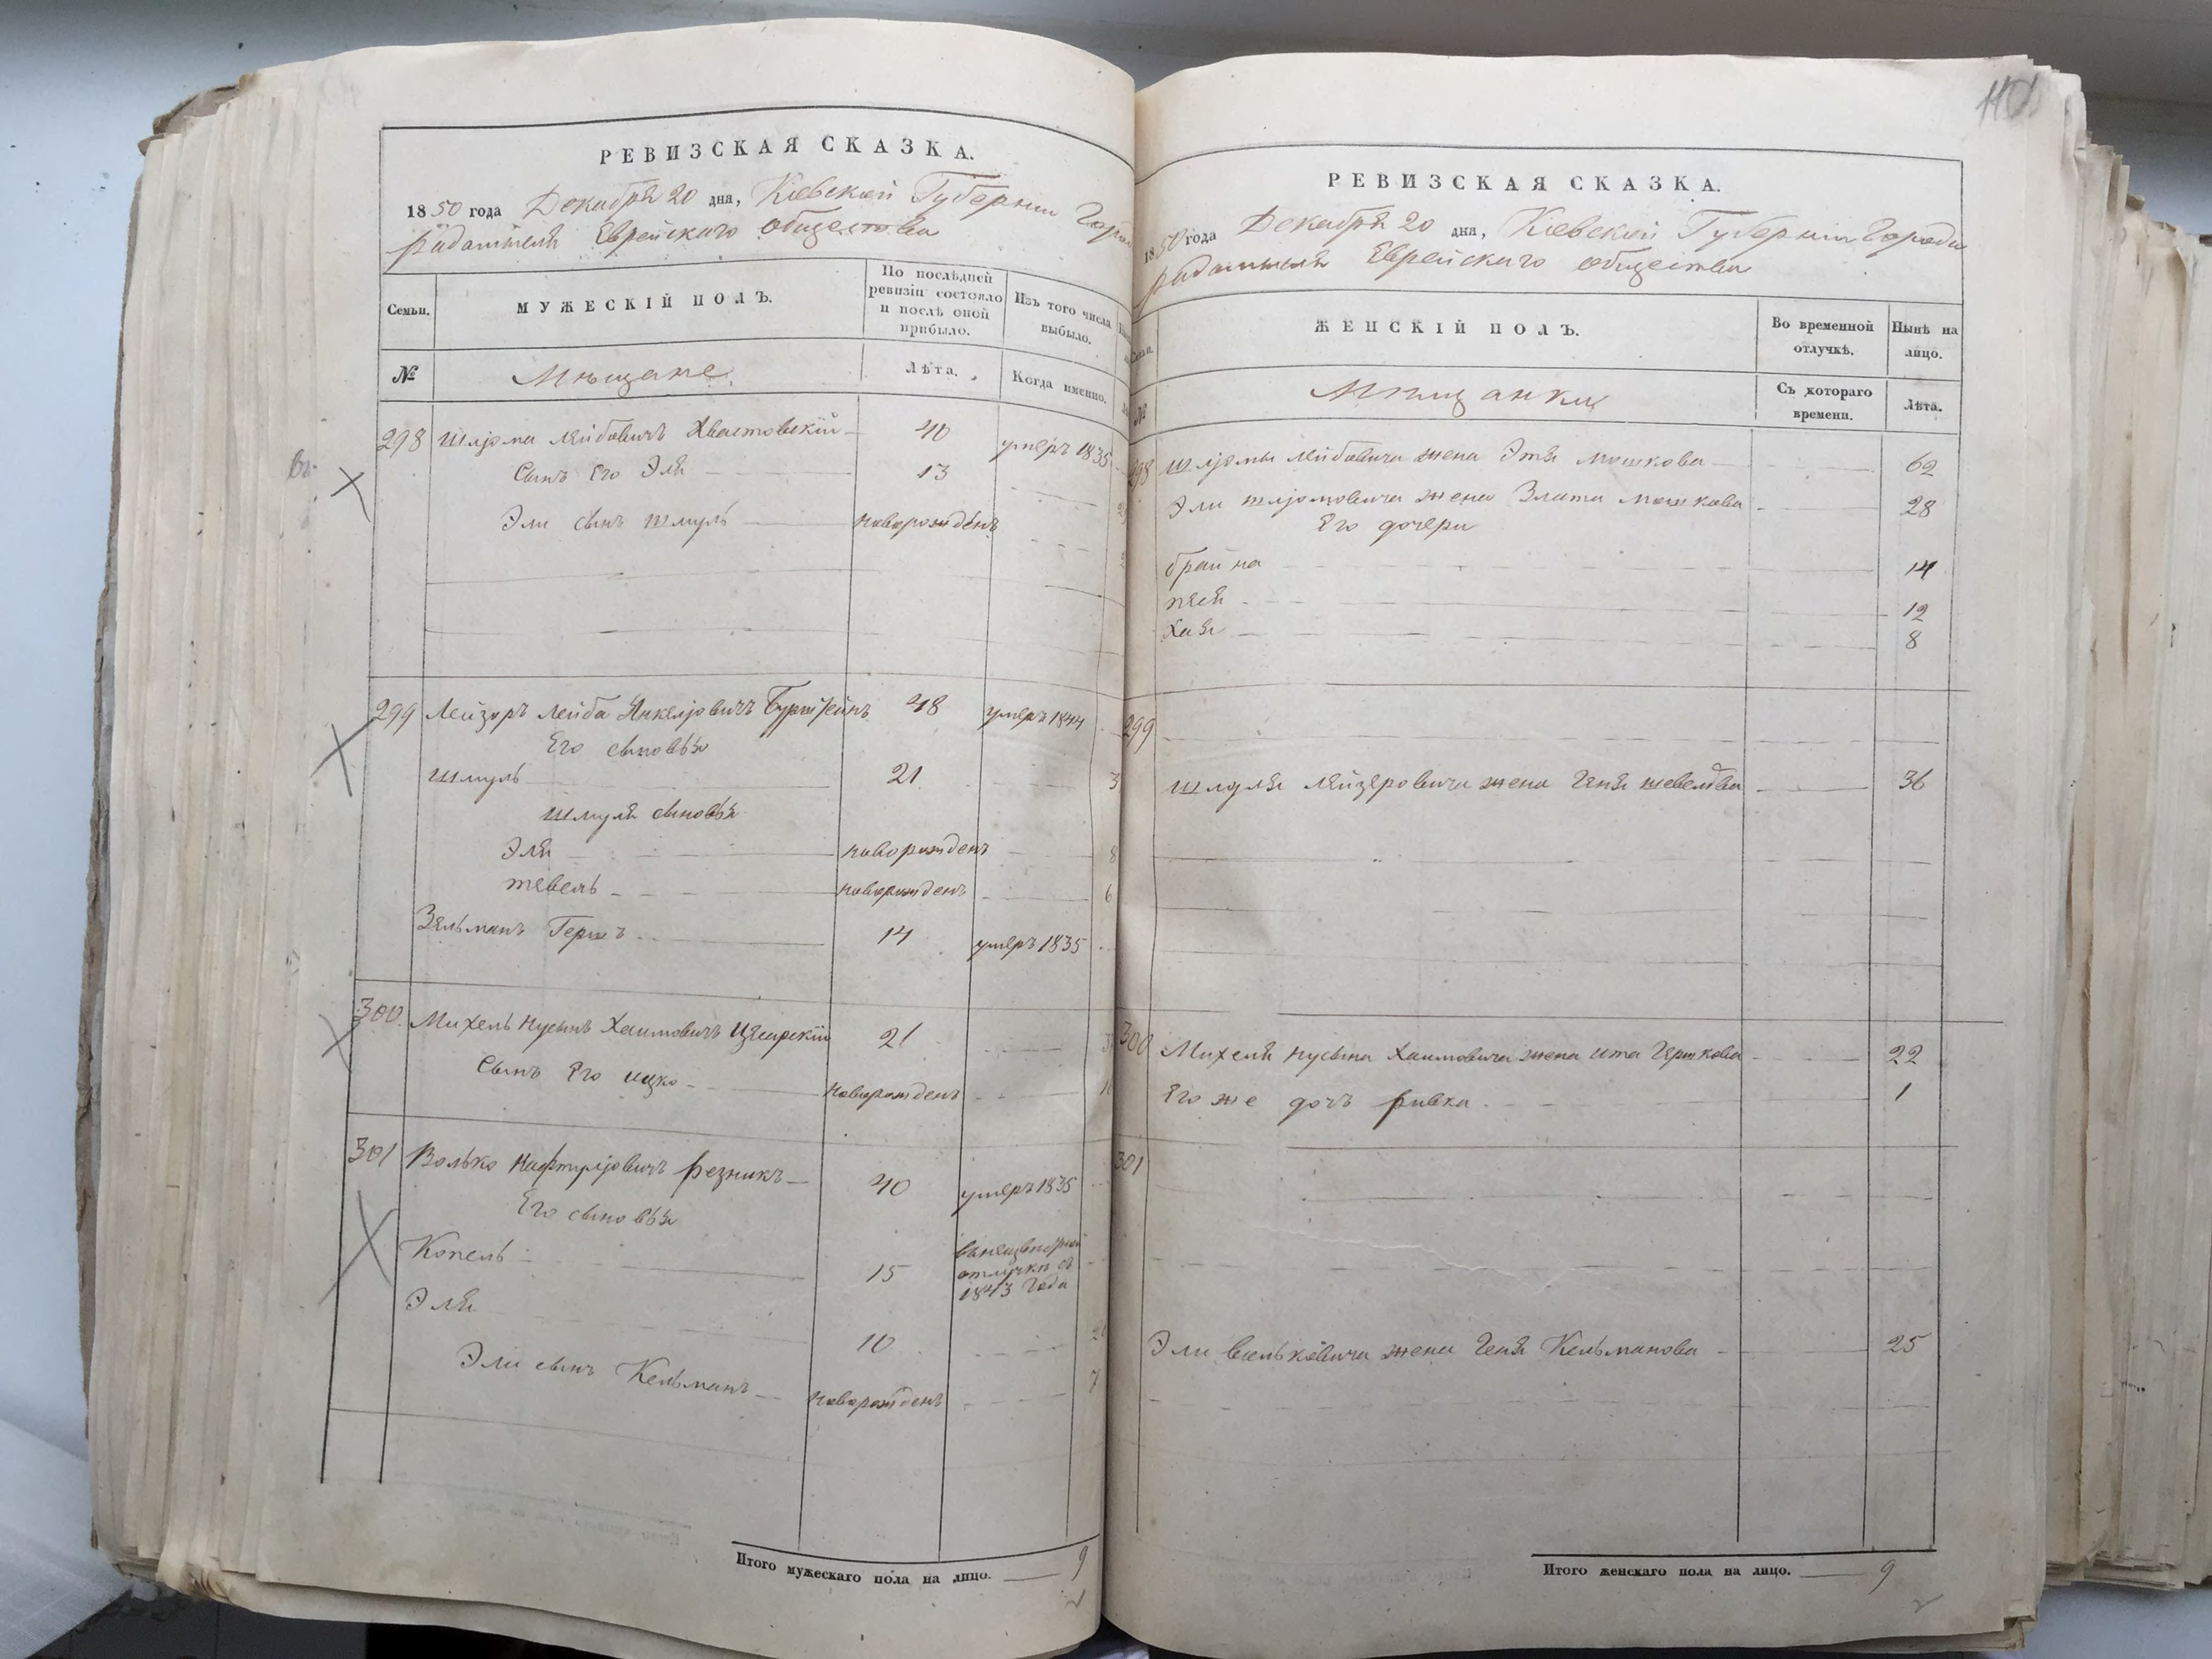 РЕВИЗСКАЯ СКАЗКА.
1850 года Декабря 20 дня, Кіевской Губерніи
Радомысля Еврейскаго общества
Семьи.
МУЖЕСКІЙ ПОЛЪ.
По послѣдней ревизіи состояло и послѣ оной прибыло.
Изъ того числа выбыло.
№
Мѣщане.
Лѣта.
Когда именно.
298 Шліома Лейбовичъ Хвастовскій 40 умеръ 1835
Сынъ Его Эля 13
Эли сынъ Шмуль новорожденъ
299 Лейзоръ Лейба Янкеліовичъ 48 умеръ 1844
Его сыновья
Шмуль 21
Шмуля сыновья
Эля новорожденъ 8
тевель новорожденъ 6
Зельманъ Гершъ 14 умеръ 1835
300. Михель Нусынъ Хаимовичъ Цесарскій 21
Сынъ Его ицко новорожденъ
301 Волько Нафтуліовичъ Резникъ 40 умеръ 1835
Его сыновья
Копель 15 отлучкѣ съ 1843 Года
Эля 10
Эли сынъ Кельманъ новорожденъ 7
Итого мужескаго пола на лицо. 9
110
РЕВИЗСКАЯ СКАЗКА.
1850 года Декабря 20 дня, Кіевской Губерніи Города
Радомысля Еврейскаго общества
ЖЕНСКІЙ ПОЛЪ.
Во временной отлучкѣ.
Нынѣ на лицо.
№
Мѣщанки
Съ котораго времени.
Лѣта.
298 Шліомы Лейбовича жена Этя Мошкова 62
Эли Шліомовича жена Злата Мошкова 28
Его дочери
брайна 14
песя 12
Хая 8
299
Шмуля Лейзеровича жена Геня 36
300 Михеля Нусына Хаимовича жена ита Гершкова 22
Его же дочь ривка 1
301
Эли Вольковича жена Геня Кельманова 25
Итого женскаго пола на лицо. 9